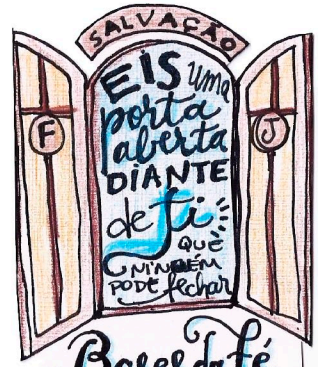 SALVAÇÃO
EIS uma
porta
aberta
DIANTE
de ti
QUE
NINGUÉM
PODE fechar
F
J
Bases da fé